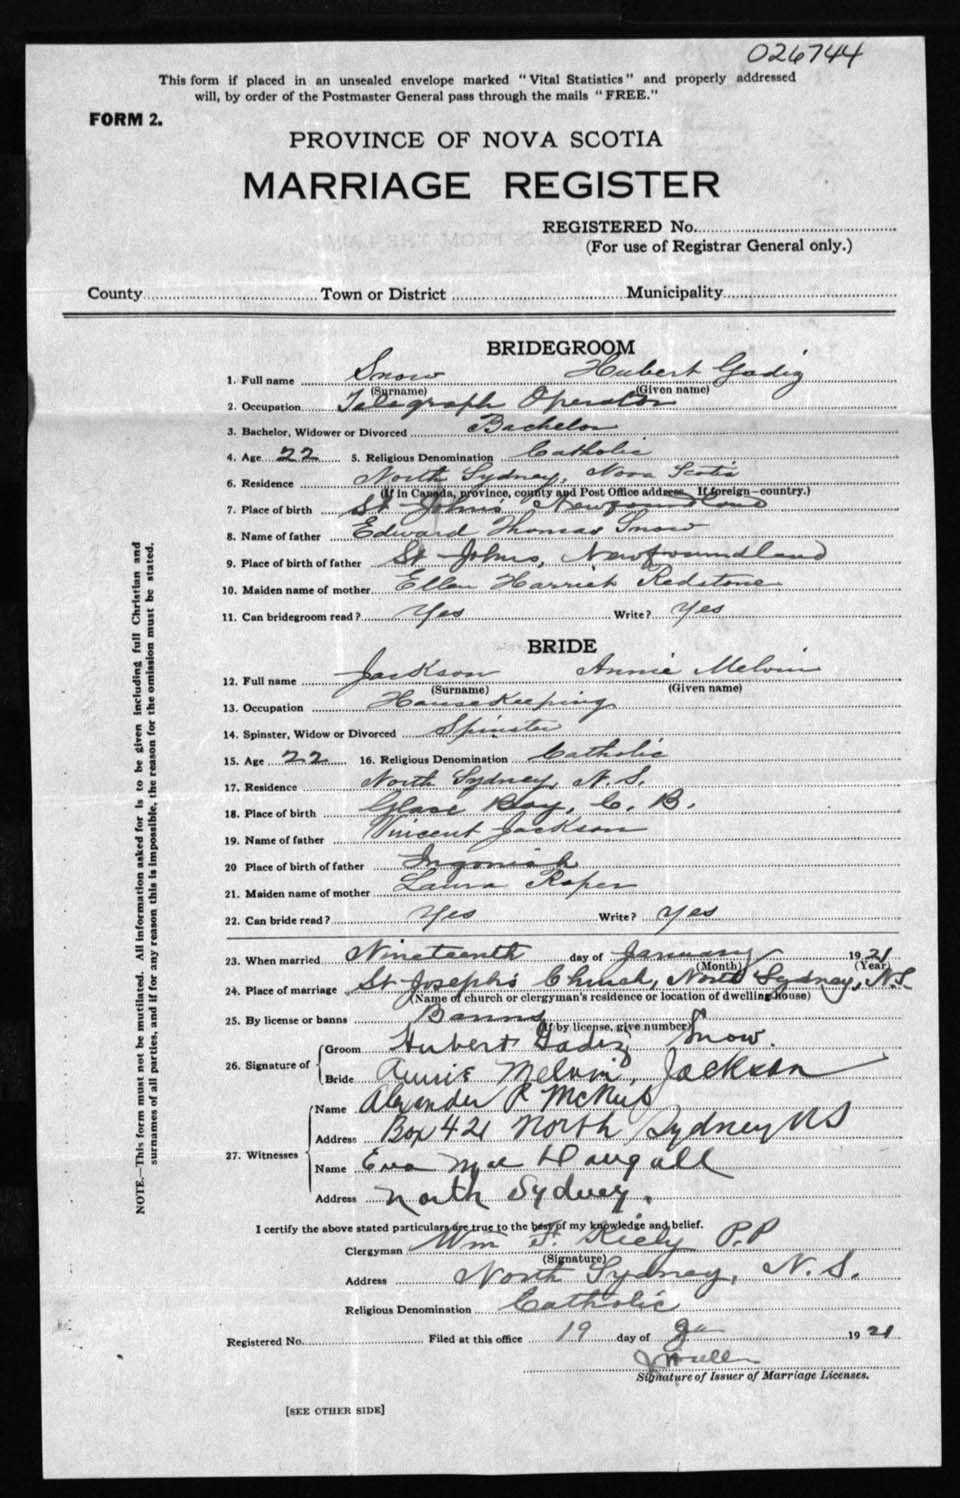 026744
This form if placed in an unsealed envelope marked "Vital Statistics" and properly addressed
will, by order of the Postmaster General pass through the mails "FREE."
FORM 2.
PROVINCE OF NOVA SCOTIA
MARRIAGE REGISTER
REGISTERED No.
(For use of Registrar General only.)
County Town or District Municipality
BRIDEGROOM
1. Full name Snow Hubert Gadiz
(Surname) (Given name)
2. Occupation Telegraph Operator
3. Bachelor, Widower or Divorced Bachelor
4. Age 22 5. Religious Denomination Catholic
6. Residence North Sydney, Nova Scotia
(If in Canada, province, county and Post Office address. If foreign—country.)
7. Place of birth St John's Newfoundland
8. Name of father Edward Thomas Snow
9. Place of birth of father St Johns, Newfoundland
10. Maiden name of mother Ellen Harriet Redstone
11. Can bridegroom read? Yes Write? Yes
BRIDE
12. Full name Jackson Annie Melvin
(Surname) (Given name)
13. Occupation HouseKeeping
14. Spinster, Widow or Divorced Spinster
15. Age 22 16. Religious Denomination Catholic
17. Residence North Sydney, N. S.
18. Place of birth Glace Bay, C. B.
19. Name of father Vincent Jackson
20 Place of birth of father Ingonish
21. Maiden name of mother Laura Roper
22. Can bride read? Yes Write? Yes
23. When married Nineteenth day of January 1921
(Month) (Year)
24. Place of marriage St Joseph's Church, North Sydney, N.S.
(Name of church or clergyman's residence or location of dwelling house)
25. By license or banns Banns
(If by license, give number)
26. Signature of Groom Hubert Gadiz Snow.
Bride Annie Melvin Jackson
27. Witnesses Name Alexander R
Address Box 421 North Sydney NS
Name Eva Mac Dougall
Address North Sydney.
I certify the above stated particulars are true to the best of my knowledge and belief.
Clergyman Wm F. Kiely P.P
(Signature)
Address North Sydney, N. S.
Religious Denomination Catholic
Registered No. Filed at this office 19 day of Ja 1921
Signature of Issuer of Marriage Licenses.
[SEE OTHER SIDE]
NOTE.—This form must not be mutilated. All information asked for is to be given including full Christian and
surnames of all parties, and if for any reason this is impossible, the reason for the omission must be stated.